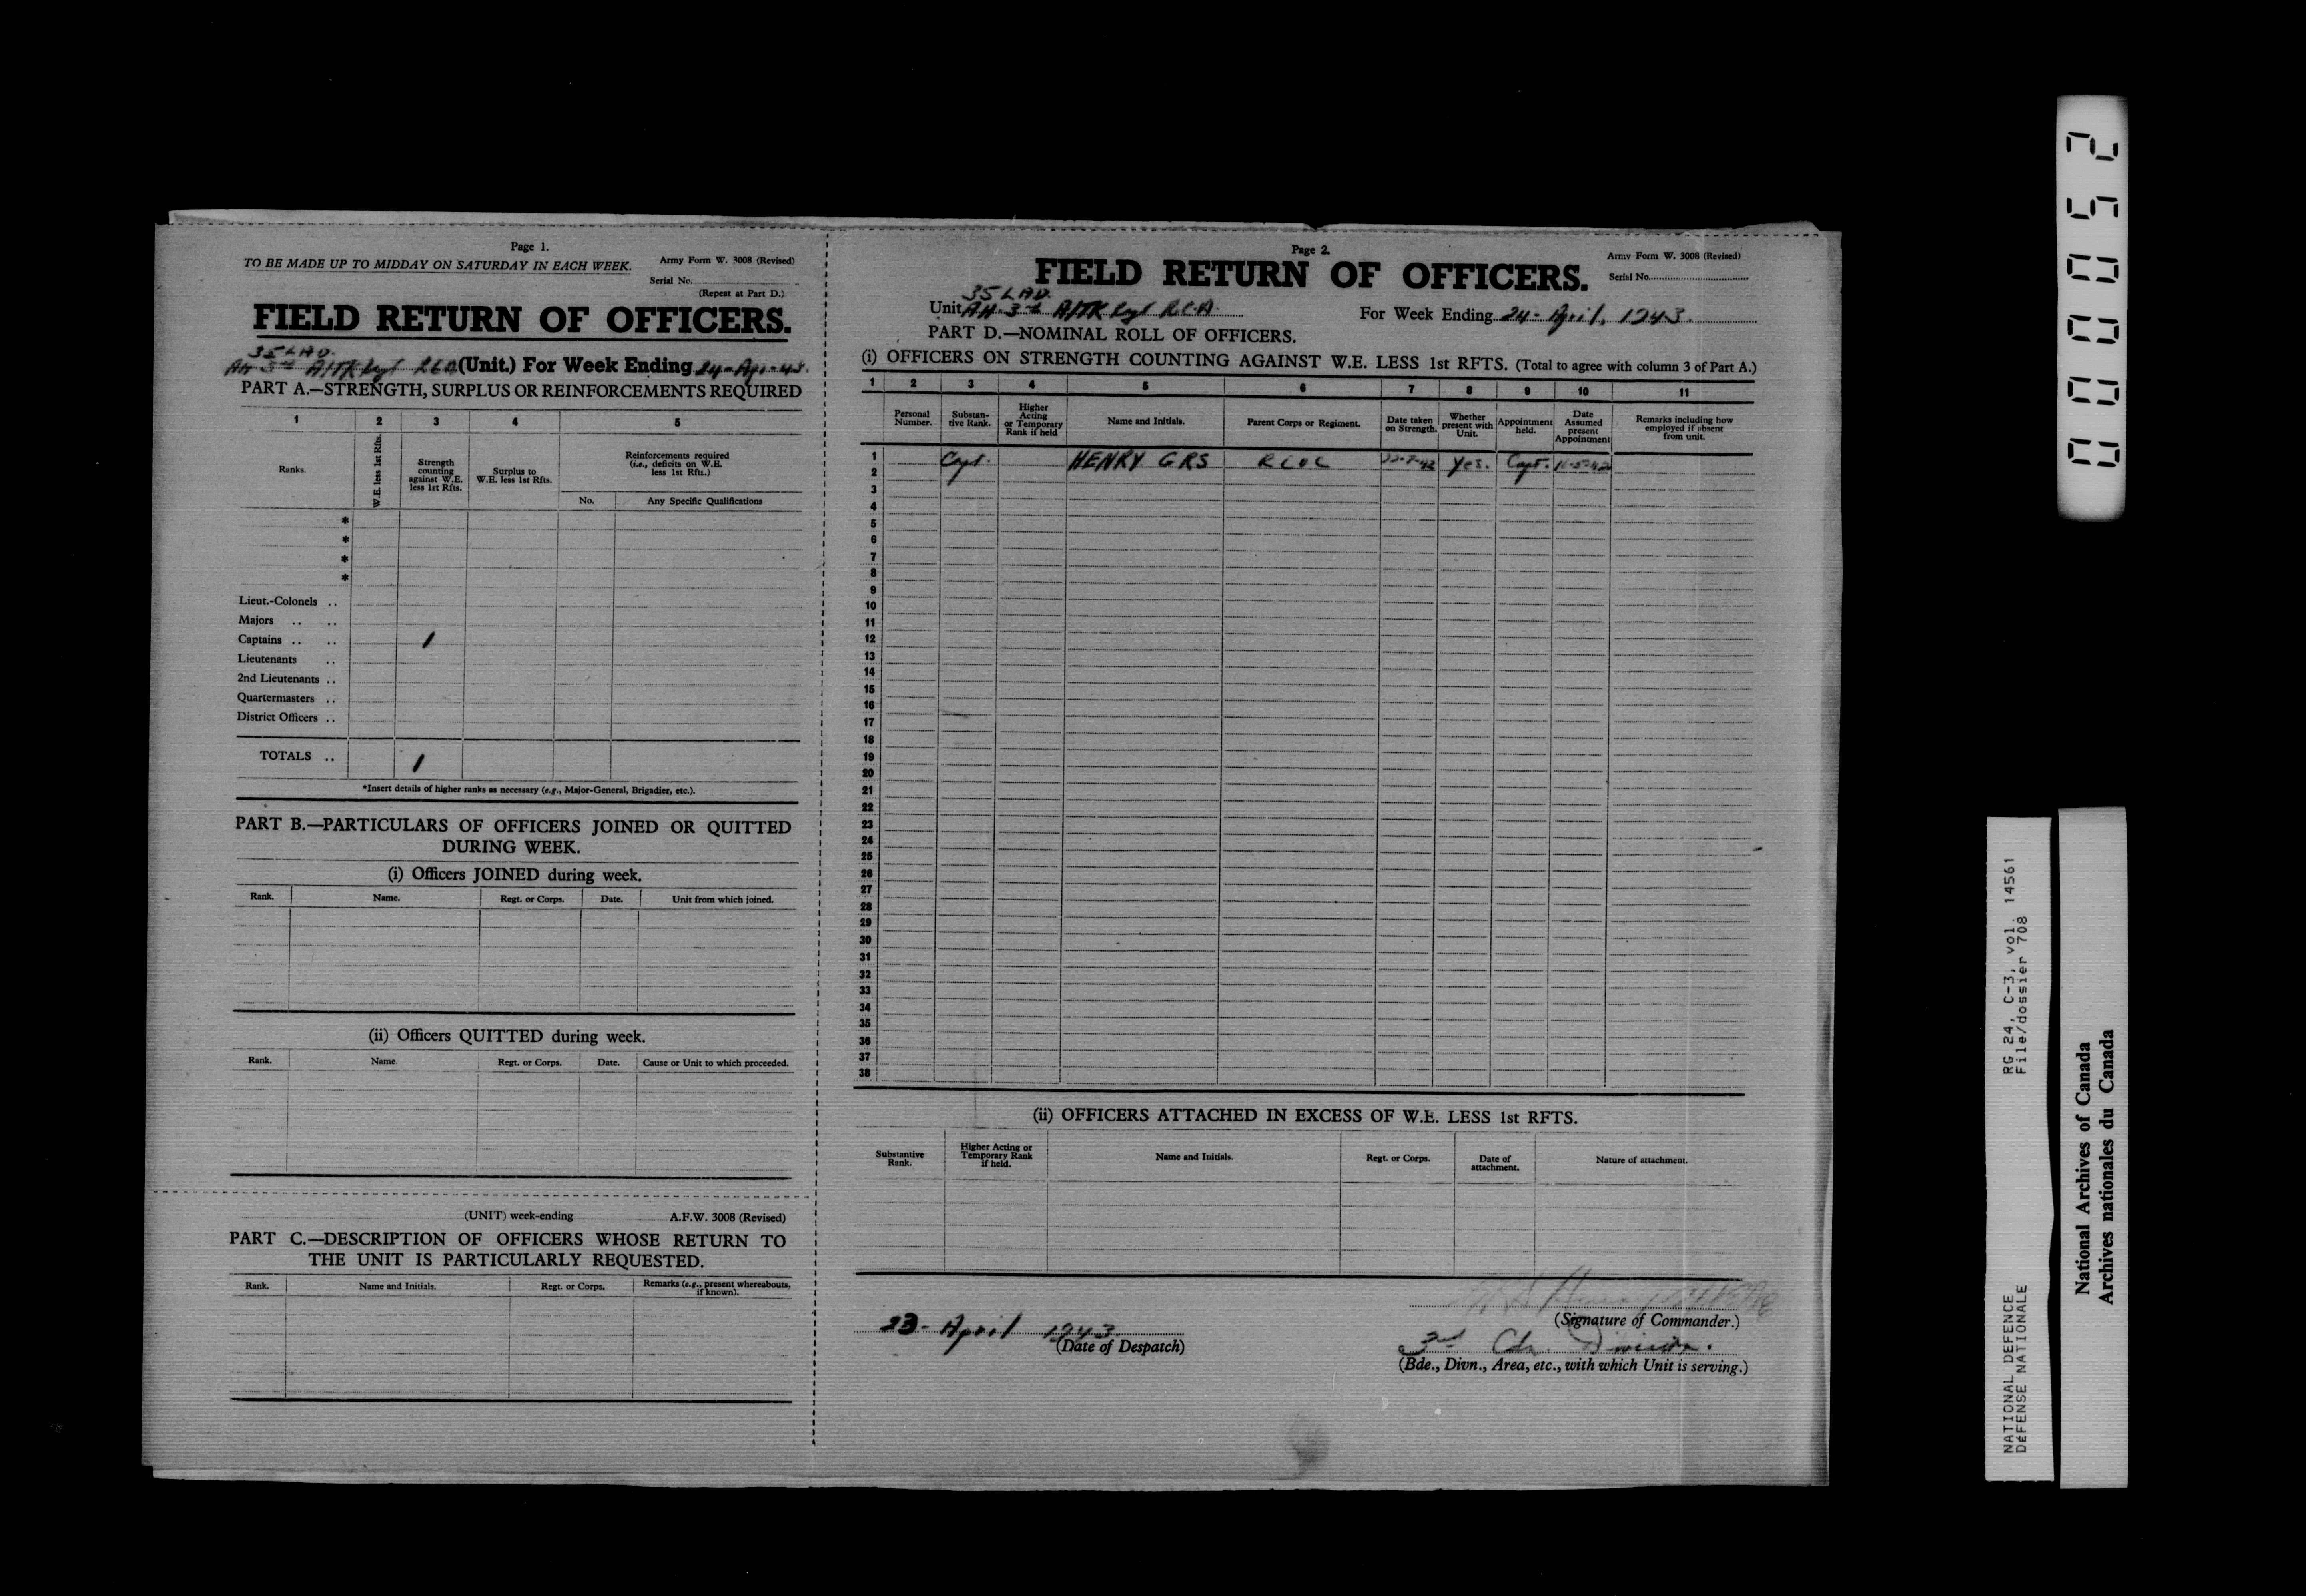 Page 1.
TO BE MADE UP TO MIDDAY ON SATURDAY IN EACH WEEK.
Army Form W. 3008 (Revised)
Serial No.
(Repeat at Part D.)
FIELD RETURN OF OFFICERS.
35 LAD.
A/TK RCA (Unit.) For Week Ending 24-Apr-43.
PART A.—STRENGTH, SURPLUS OR REINFORCEMENTS REQUIRED
1 2 3 4 5
Ranks.
W.E. less 1st Rfts.
Strength counting against W.E. less 1st Rfts.
Surplus to W.E. less 1st Rfts.
Reinforcements required (i.e., deficits on W.E. less 1st Rfts.)
No. Any Specific Qualifications
*
*
*
*
Lieut.-Colonels ..
Majors .. ..
Captains .. .. 1
Lieutenants ..
2nd Lieutenants ..
Quartermasters ..
District Officers ..
TOTALS .. 1
*Insert details of higher ranks as necessary (e.g., Major-General, Brigadier, etc.).
PART B.—PARTICULARS OF OFFICERS JOINED OR QUITTED
DURING WEEK.
(i) Officers JOINED during week.
Rank. Name. Regt. or Corps. Date. Unit from which joined.
(ii) Officers QUITTED during week.
Rank. Name. Regt. or Corps. Date. Cause or Unit to which proceeded.
(UNIT) week-ending A.F.W. 3008 (Revised)
PART C.—DESCRIPTION OF OFFICERS WHOSE RETURN TO
THE UNIT IS PARTICULARLY REQUESTED.
Rank. Name and Initials. Regt. or Corps. Remarks (e.g., present whereabouts, if known).
Page 2.
Army Form W. 3008 (Revised)
FIELD RETURN OF OFFICERS.
Serial No.
35 LAD.
Unit 3rd A/TK RCA. For Week Ending 24-April, 1943.
PART D.—NOMINAL ROLL OF OFFICERS.
(i) OFFICERS ON STRENGTH COUNTING AGAINST W.E. LESS 1st RFTS. (Total to agree with column 3 of Part A.)
1 2 3 4 5 6 7 8 9 10 11
Personal Number.
Substantive Rank.
Higher Acting or Temporary Rank if held
Name and Initials.
Parent Corps or Regiment.
Date taken on Strength.
Whether present with Unit.
Appointment held.
Date Assumed present Appointment
Remarks including how employed if absent from unit.
1 Capt. HENRY GRS RCOC 22-7-42 Yes. Capt. 11-5-42
2
3
4
5
6
7
8
9
10
11
12
13
14
15
16
17
18
19
20
21
22
23
24
25
26
27
28
29
30
31
32
33
34
35
36
37
38
(ii) OFFICERS ATTACHED IN EXCESS OF W.E. LESS 1st RFTS.
Substantive Rank.
Higher Acting or Temporary Rank if held.
Name and Initials.
Regt. or Corps.
Date of attachment.
Nature of attachment.
23-April 1943.
(Date of Despatch)
(Signature of Commander.)
3rd Cdn. Division.
(Bde., Divn., Area, etc., with which Unit is serving.)
000052
NATIONAL DEFENCE RG 24, C-3, vol. 14561
DÉFENSE NATIONALE File/dossier 708
National Archives of Canada
Archives nationales du Canada